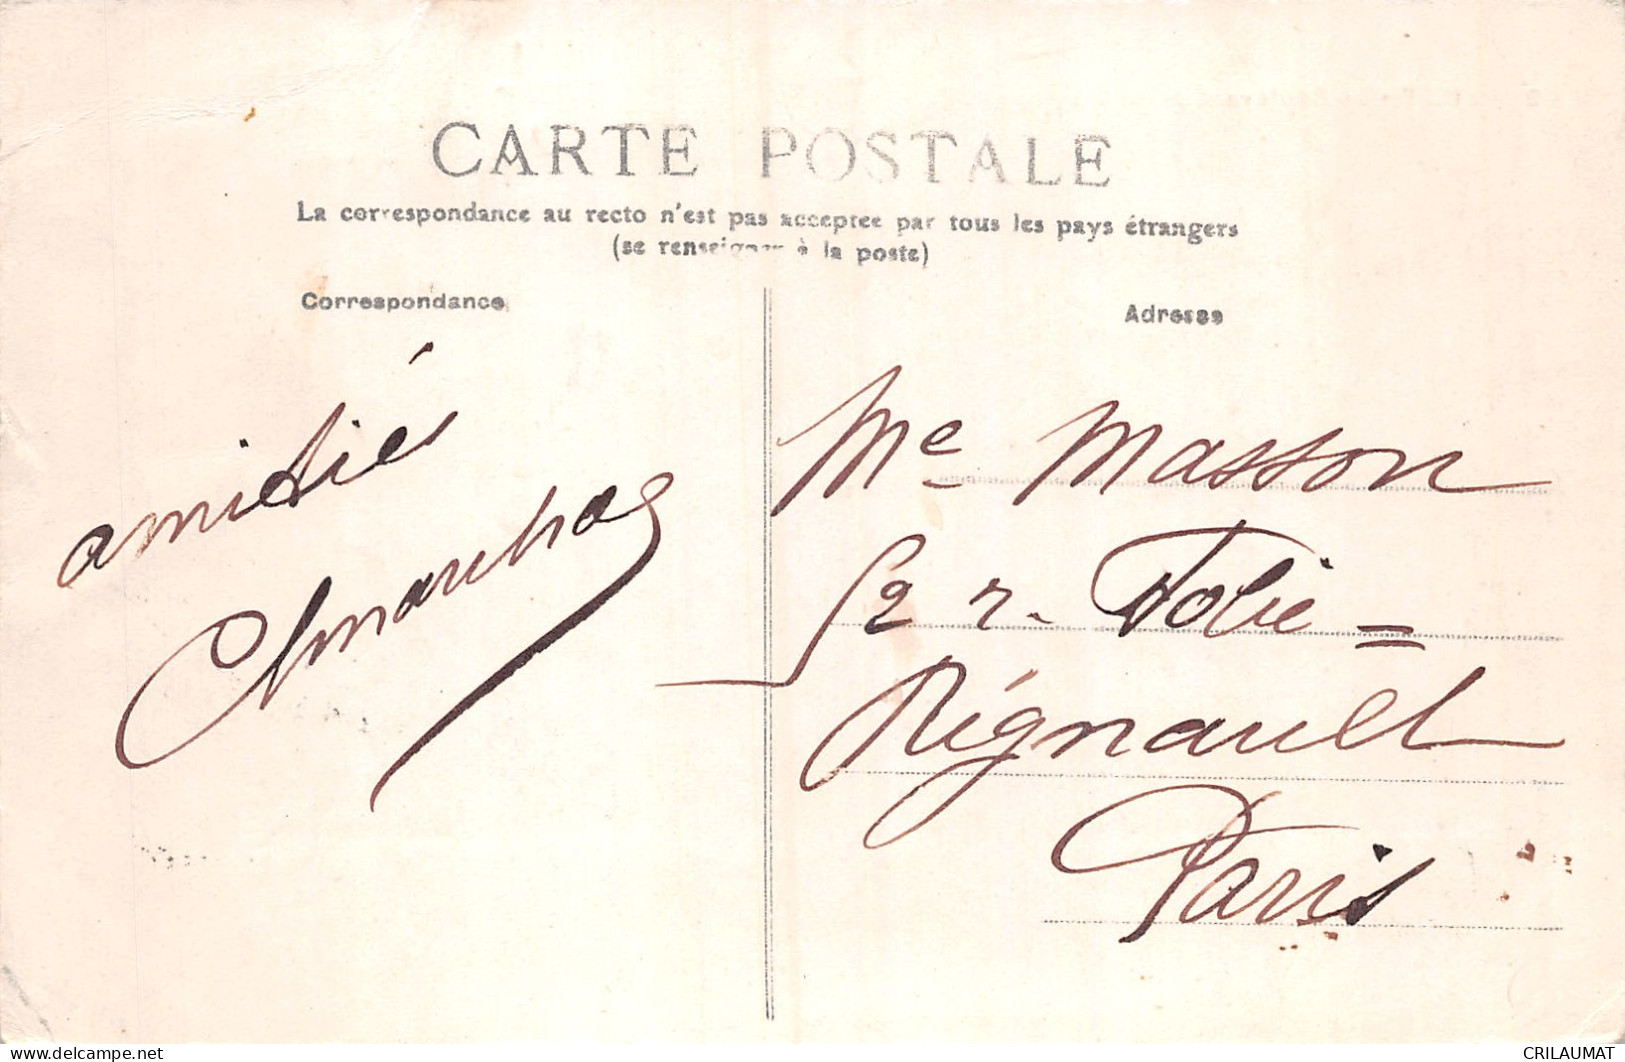 CARTE POSTALE
La correspondance au recto n'est pas acceptee par tous les pays étrangers
(se renseigner à la poste)
Correspondance
Adresse
amitié
Me Masson
52 r. Folie =
Régnault
Paris
www.delcampe.net
CRILAUMAT